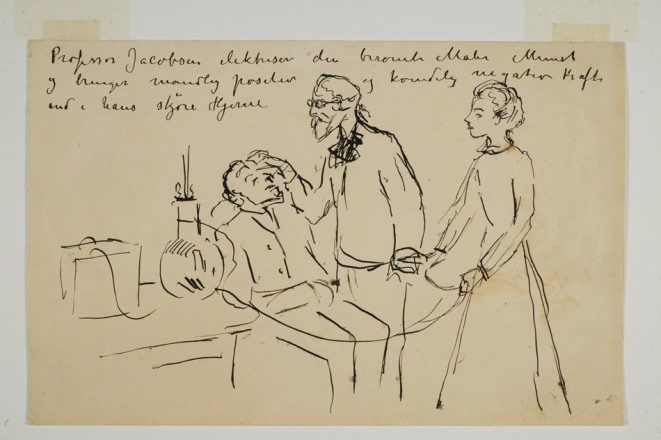 Professor Jacobson elektriser den berømte Maler Munch
og bringer mandlig positiv og kvindelig negativ Kraft
ind i hans skjøre Hjerne